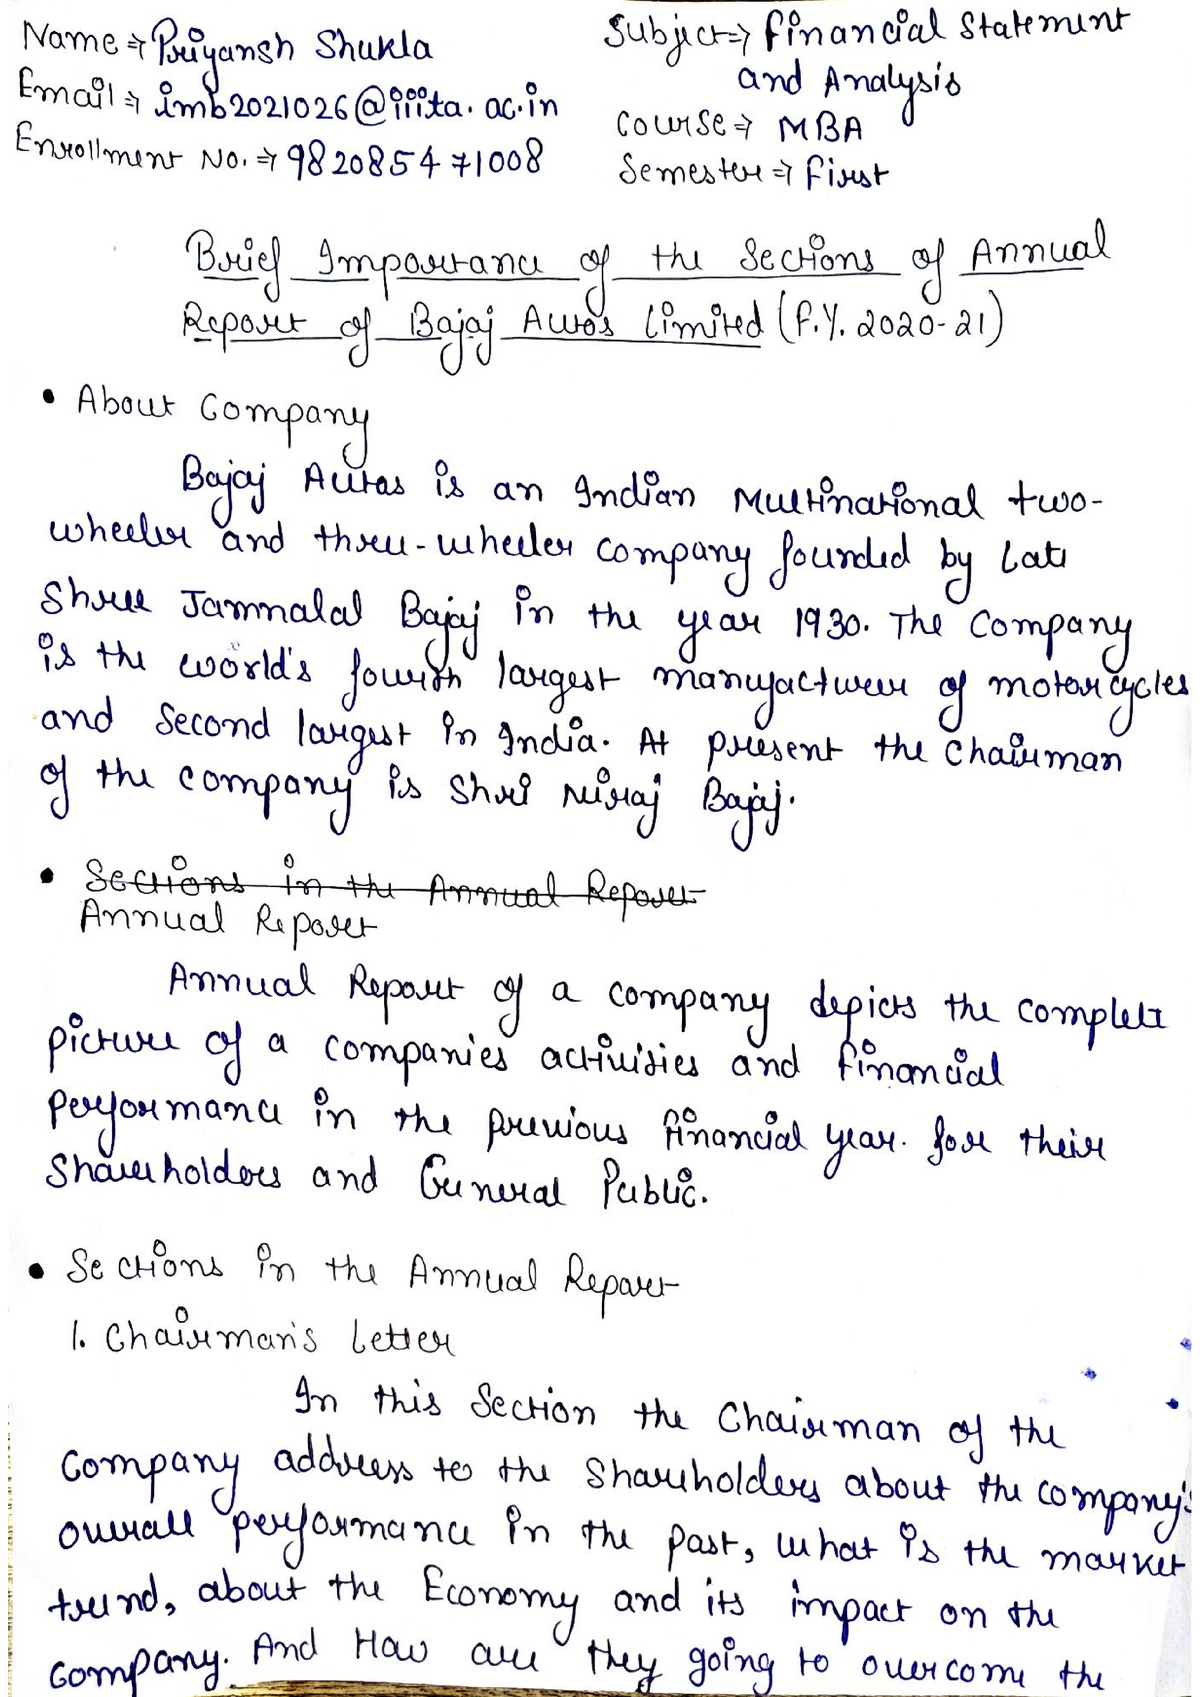 Name ⇒ Priyansh Shukla
Email ⇒ imb2021026@iiita.ac.in
Enrollment No. ⇒ 982085471008
Subject ⇒ Financial Statement
and Analysis
Course ⇒ MBA
Semester ⇒ First
Brief Importance of the Sections of Annual
Report of Bajaj Autos Limited (F.Y. 2020-21)
• About Company
Bajaj Autos is an Indian Multinational two-
wheeler and three-wheeler company founded by Late
Shree Jamnalal Bajaj in the year 1930. The Company
is the world's fourth largest manufacturer of motorcycles
and second largest in India. At present the Chairman
of the company is Shri Niraj Bajaj.
• Sections in the Annual Report
Annual Report
Annual Report of a company depicts the complete
picture of a companies activities and financial
performance in the previous financial year. for their
Shareholders and General Public.
• Sections in the Annual Report
1. Chairman's Letter
In this Section the Chairman of the
Company address to the Shareholders about the company's
overall performance in the past, what is the market
trend, about the Economy and its impact on the
Company. And How are they going to overcome the